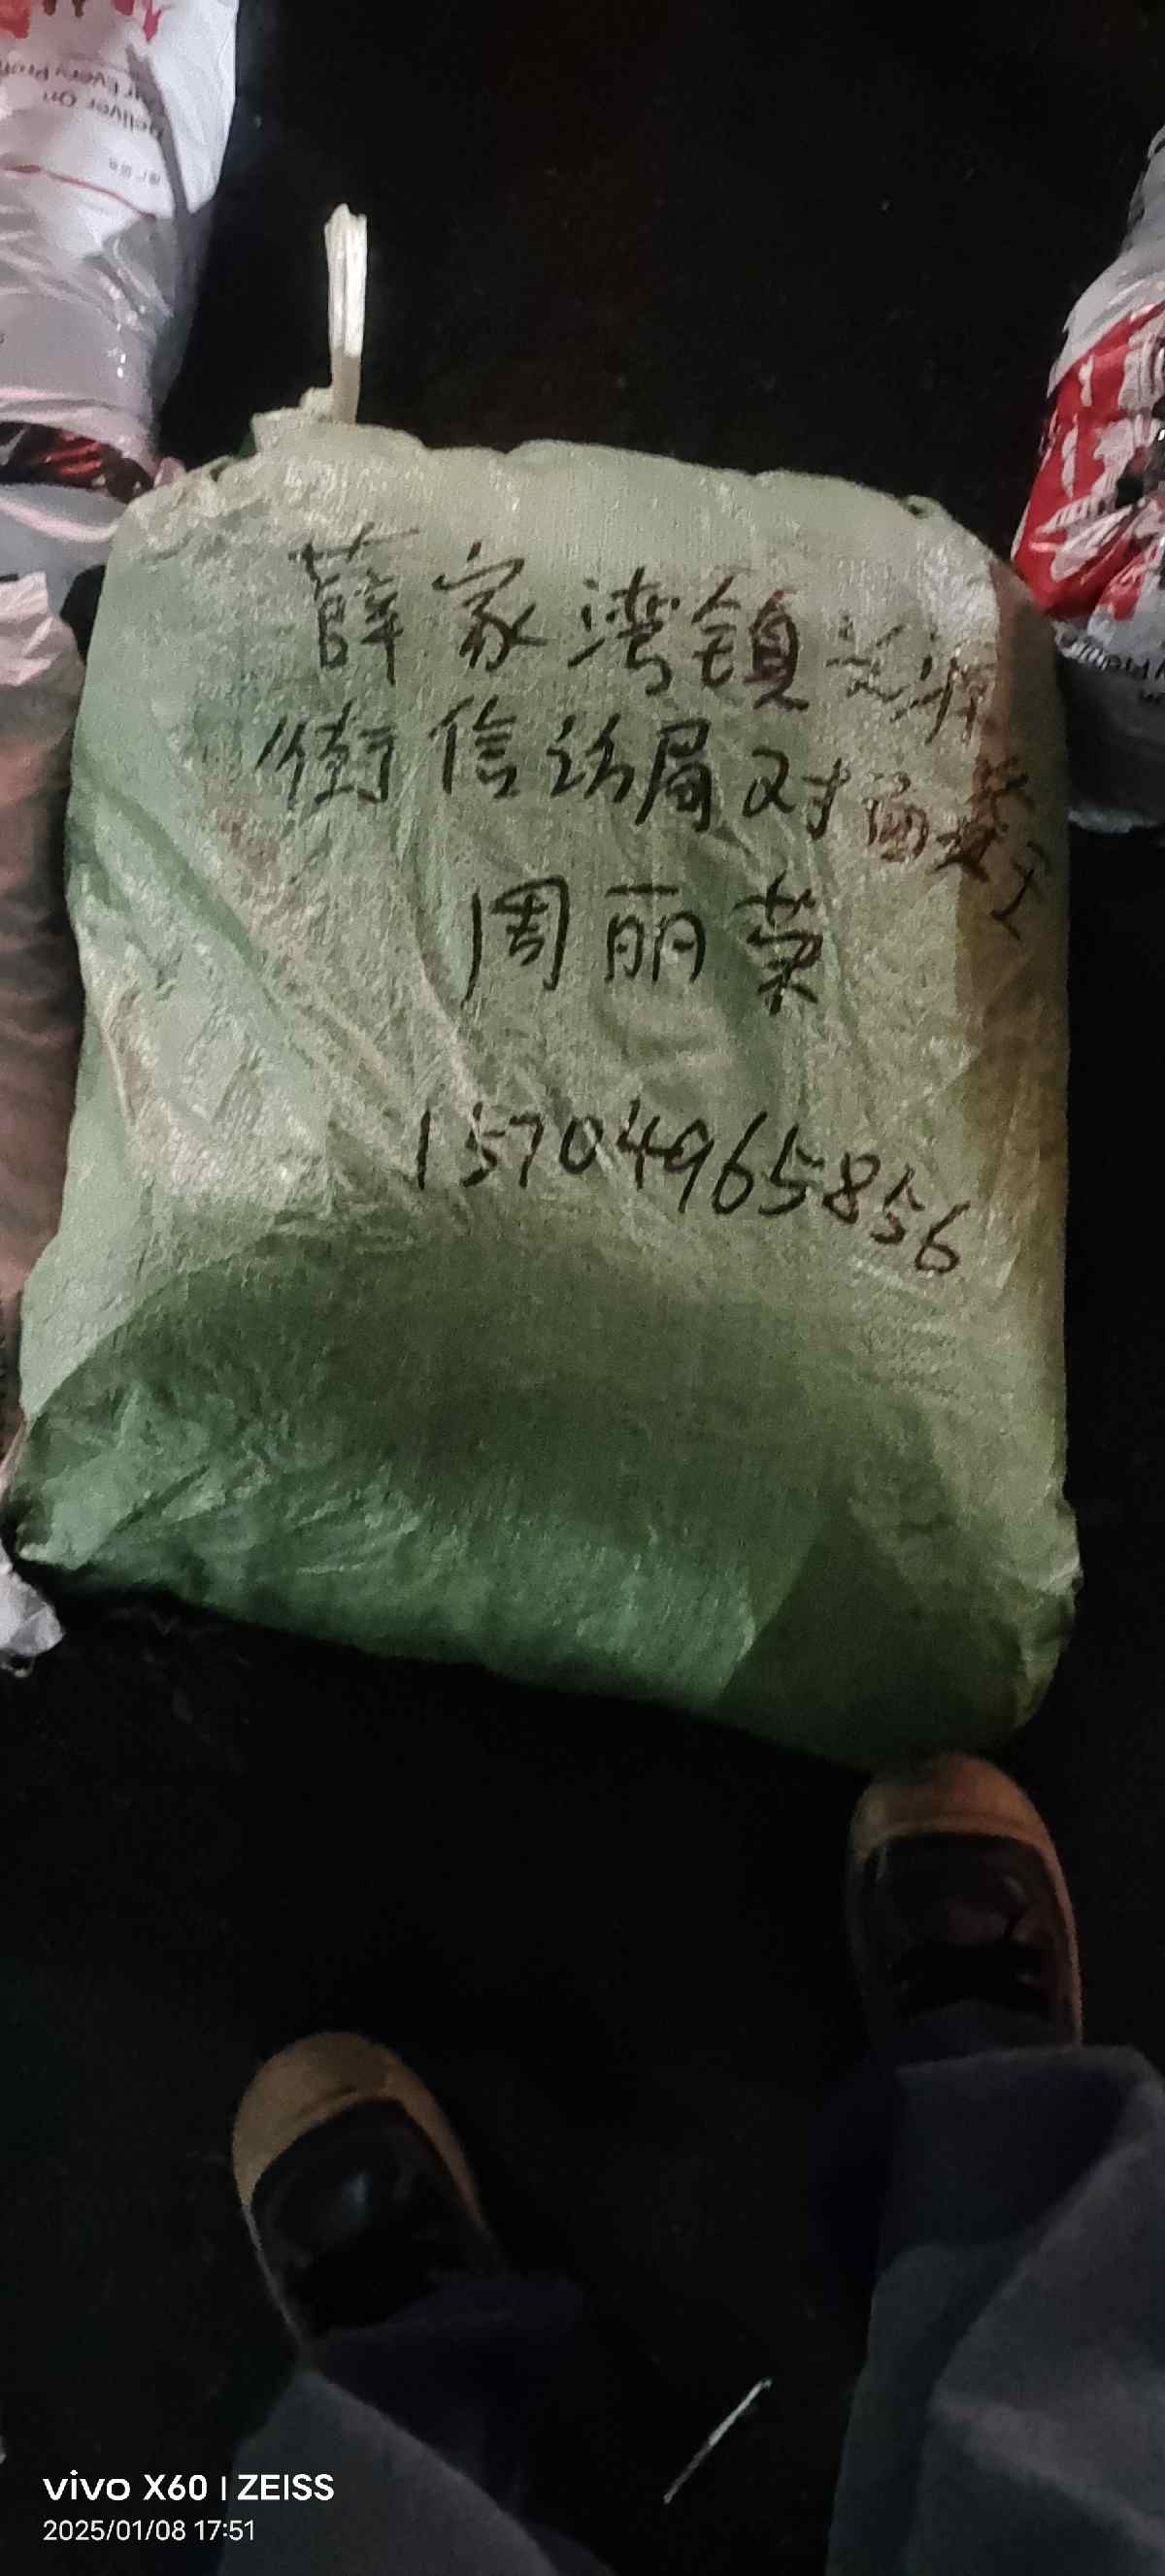 薛家湾镇兴泽
街信访局对面
周丽荣
15704965856
Deliver On
vivo X60 | ZEISS
2025/01/08 17:51